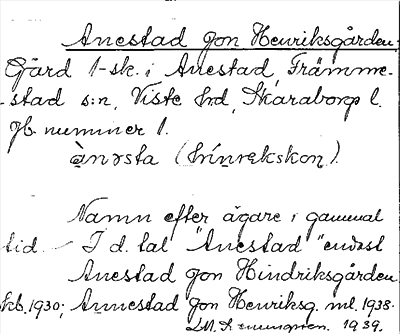 Anestad Jon Henriksgården.
Gård 1-sk. i Anestad, Främme-
-stad s:n, Viste hd, Skaraborgs l.
Jb. nummer 1.
ànǝsta (hínrǝkskon).
Namn efter ägare i gammal
tid. – I d. tal "Anestad" endast
Anestad Jon Hindriksgården
kb. 1930; Annestad Jon Henriksg. ml. 1938.
1939.